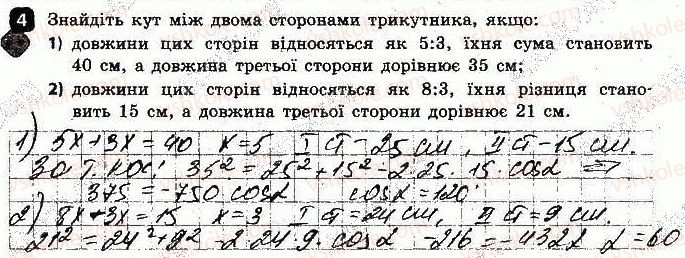 4 Знайдіть кут між двома сторонами трикутника, якщо:
1) довжини цих сторін відносяться як 5:3, їхня сума становить
40 см, а довжина третьої сторони дорівнює 35 см;
2) довжини цих сторін відносяться як 8:3, їхня різниця стано-
вить 15 см, а довжина третьої сторони дорівнює 21 см.
1) 5x+3x=40 x=5 I ст-25 см, II ст-15 см.
За т. кос: 35²=25²+15²-2·25·15·cosα ⇒
375=-750 cosα cosα=120°
2) 8x+3x=15 x=3 I ст=24 см, II ст=9 см.
21²=24²+9²-2·24·9·cosα -216=-432α α=60